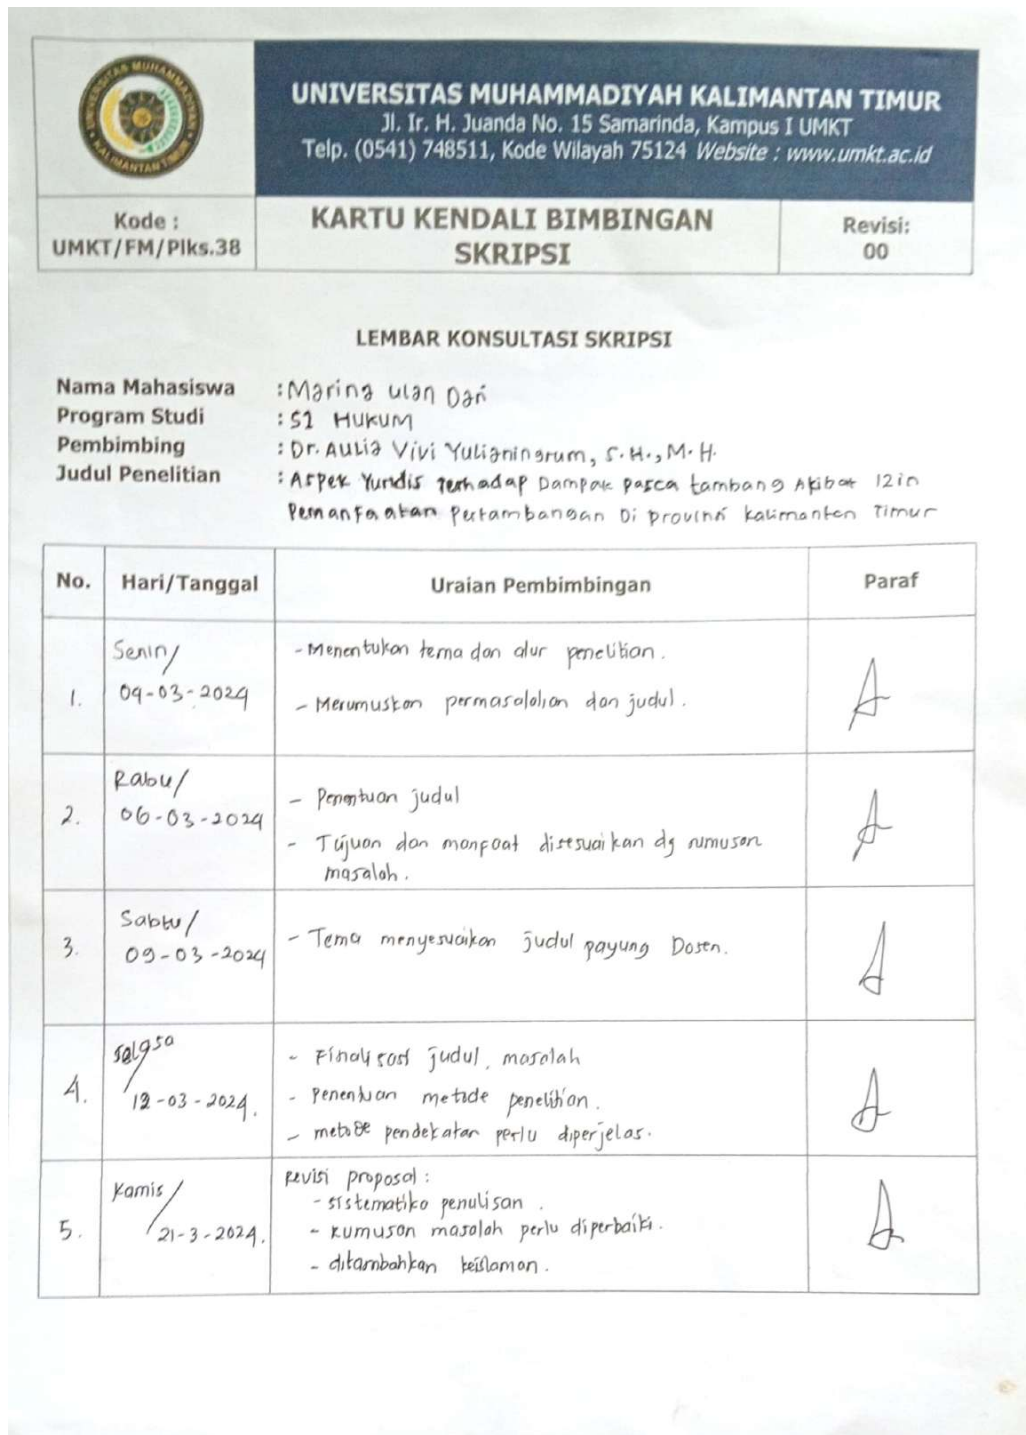 UNIVERSITAS MUHAMMADIYAH
KALIMANTAN TIMUR
UNIVERSITAS MUHAMMADIYAH KALIMANTAN TIMUR
Jl. Ir. H. Juanda No. 15 Samarinda, Kampus I UMKT
Telp. (0541) 748511, Kode Wilayah 75124 Website : www.umkt.ac.id
Kode :
UMKT/FM/Plks.38
KARTU KENDALI BIMBINGAN
SKRIPSI
Revisi:
00
LEMBAR KONSULTASI SKRIPSI
Nama Mahasiswa : Marina Ulan Dari
Program Studi : S1 HUKUM
Pembimbing : Dr. Aulia Vivi Yulianingrum, S.H., M.H.
Judul Penelitian : Aspek Yuridis Terhadap Dampak pasca tambang Akibat Izin
Pemanfaatan Pertambangan Di provinsi kalimantan Timur
No. Hari/Tanggal Uraian Pembimbingan Paraf
1. Senin/ 09-03-2024
- Menentukan tema dan alur penelitian.
- Merumuskan permasalahan dan judul.
2. Rabu/ 06-03-2024
- Penentuan judul
- Tujuan dan manfaat disesuaikan dg rumusan
masalah.
3. Sabtu/ 09-03-2024
- Tema menyesuaikan judul payung Dosen.
4. Selasa/ 12-03-2024.
- Finalisasi judul, masalah
- Penentuan metode penelitian.
- metode pendekatan perlu diperjelas.
5. Kamis/ 21-3-2024.
Revisi proposal :
- sistematika penulisan.
- Rumusan masalah perlu diperbaiki.
- ditambahkan keislaman.